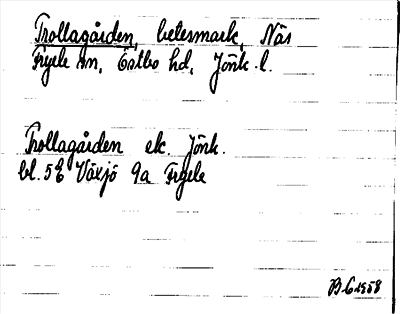 Trollagården, betesmark, Näs
Fryele sn, Östbo hd, Jönk. l.
Trollagården ek. Jönk.
bl. 5E Växjö 9a Fryele
B G 1958